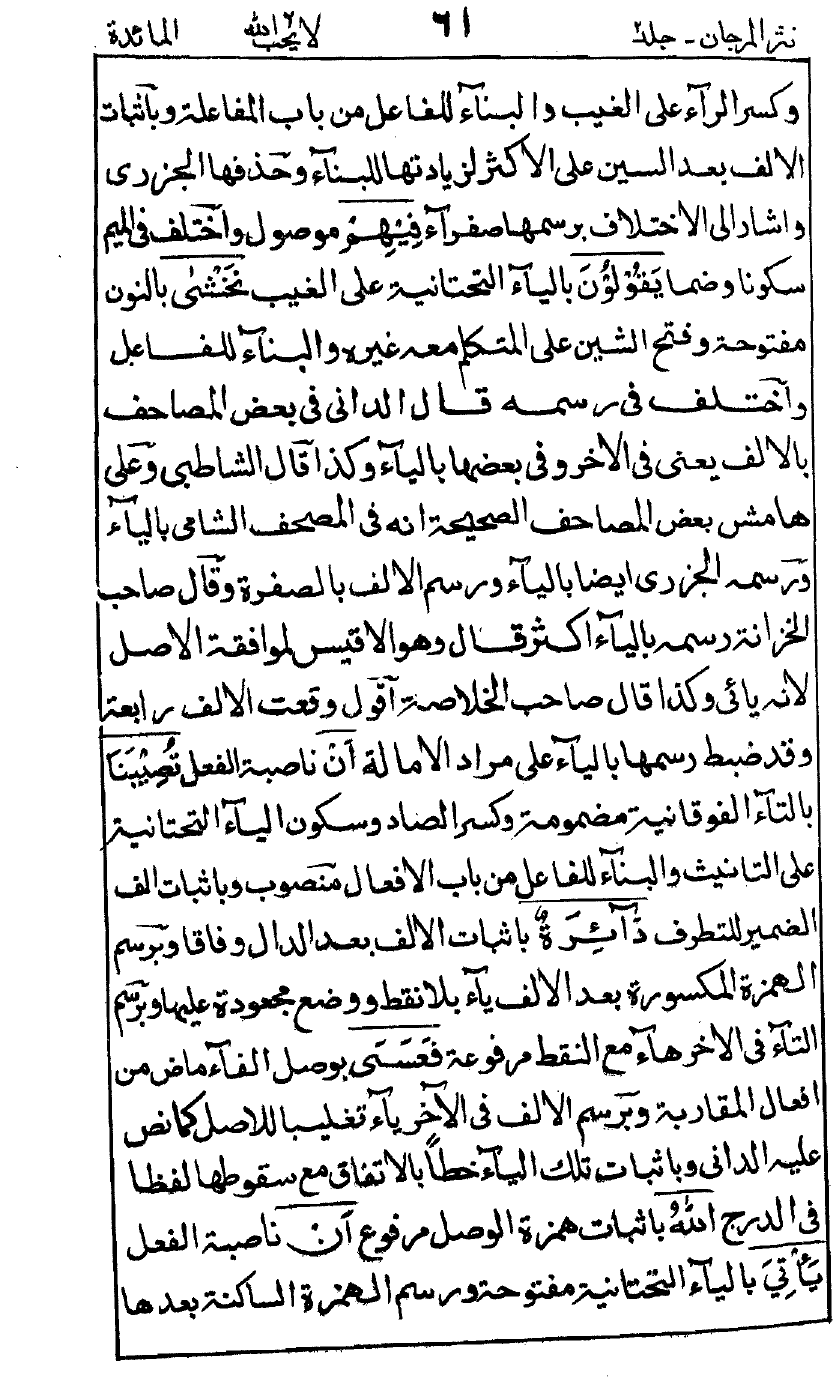 نثر المرجان - جلد۲ ٦١ لا يحب الله المائدة
وكسر الرآء على الغيب والبنآء للفاعل من باب المفاعلة وباثبات
الالف بعد السين على الاكثر لزيادتها للبنآء وحذفها الجزرى
واشار الى الاختلاف برسمها صفرآء فِيْهِمْ موصول واختلف فى الميم
سكونا وضما يَقُوْلُوْنَ باليآء التحتانية على الغيب نَخْشٰى بالنون
مفتوحة وفتح الشين على المتكلم معه غيره والبنآء للفاعل
واختلف فى رسمه قال الدانى فى بعض المصاحف
بالالف يعنى فى الاخر وفى بعضها باليآء وكذا قال الشاطبى وعلى
هامش بعض المصاحف الصحيحة انه فى المصحف الشامى باليآء
ورسمه الجزرى ايضا باليآء ورسم الالف بالصفرة وقال صاحب
الخزانة رسمه باليآء اكثر قال وهو الاقيس لموافقة الاصل
لانه يائى وكذا قال صاحب الخلاصة اقول وقعت الالف رابعة
وقد ضبط رسمها باليآء على مراد الامالة اَنْ ناصبة الفعل تُصِيْبَنَا
بالتآء الفوقانية مضمومة وكسر الصاد وسكون اليآء التحتانية
على التانيث والبنآء للفاعل من باب الافعال منصوب وباثبات الف
الضمير للتطرف دَآئِرَةٌ باثبات الالف بعد الدال وفاقا وبرسم
الهمزة المكسورة بعد الالف يآء بلا نقط ووضع مجعودة عليها وبرسم
التآء فى الاخر هآء مع النقط مرفوعة فَعَسَى بوصل الفآء ماض من
افعال المقاربة وبرسم الالف فى الآخر يآء تغليبا للاصل كما نص
عليه الدانى وباثبات تلك اليآء خطاً بالاتفاق مع سقوطها لفظا
فى الدرج اللهُ باثبات همزة الوصل مرفوع اَنْ ناصبة الفعل
يَأْتِيَ باليآء التحتانية مفتوحة ورسم الهمزة الساكنة بعدها